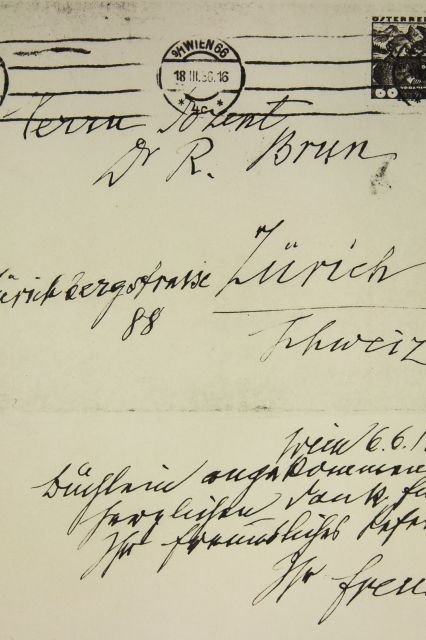 9/4 WIEN 66
18.III.36.16
* 4c *
ÖSTERREI
Herrn Dozent
Dr R. Brun
Zürichbergstrasse Zürich
88
Schweiz
Wien 6.6.1
Büchlein angekommen
herzlichen Dank. für
Ihr freundliches Refer
Ihr Freud